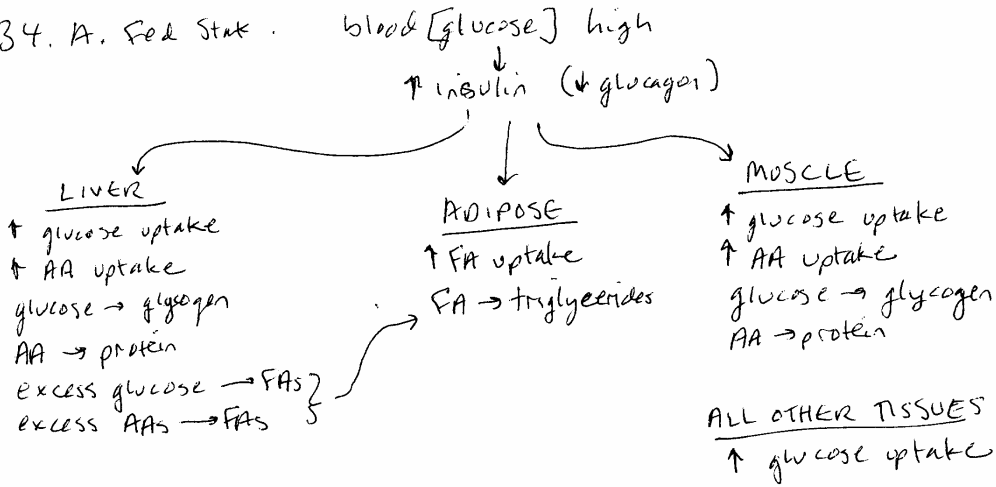 34. A. Fed State. blood [glucose] high
↓
↑ insulin (↓ glucagon)
LIVER
↑ glucose uptake
↑ AA uptake
glucose → glycogen
AA → protein
excess glucose → FAs
excess AAs → FAs
ADIPOSE
↑ FA uptake
FA → triglycerides
MUSCLE
↑ glucose uptake
↑ AA uptake
glucose → glycogen
AA → protein
ALL OTHER TISSUES
↑ glucose uptake